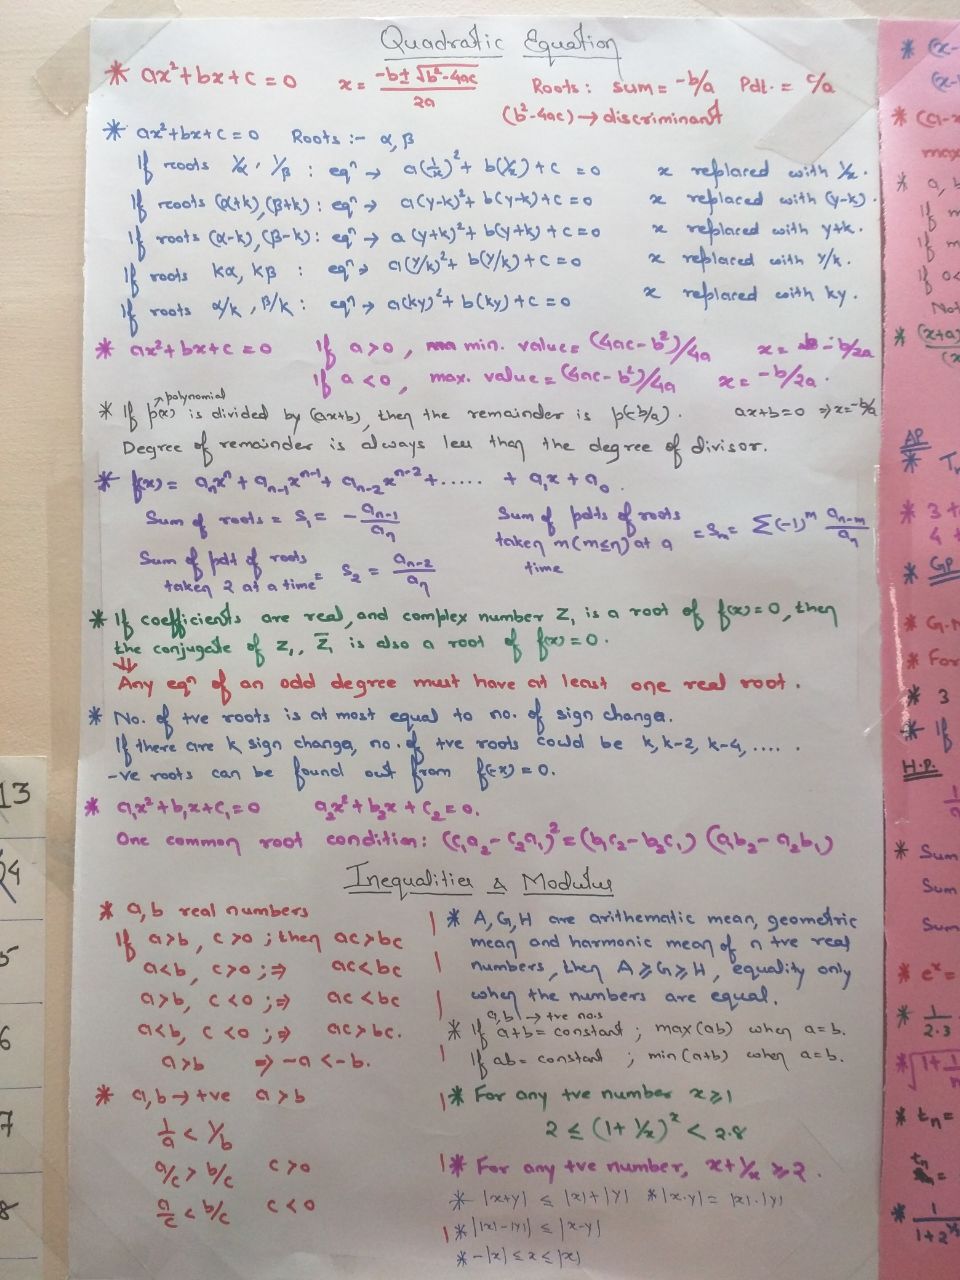 Quadratic Equation
* ax²+bx+c=0 x= (-b±√(b²-4ac))/2a Roots: sum= -b/a Pdt.= c/a
(b²-4ac)→discriminant
* ax²+bx+c=0 Roots:- α, β
If roots 1/α, 1/β : eqⁿ → a(1/x)²+ b(1/x)+c =0 x replaced with 1/x.
If roots (α+k),(β+k): eqⁿ → a(y-k)²+ b(y-k)+c=0 x replaced with (y-k).
If roots (α-k),(β-k): eqⁿ → a(y+k)²+ b(y+k)+c=0 x replaced with y+k.
If roots kα, kβ : eqⁿ → a(y/k)²+ b(y/k)+c=0 x replaced with y/k.
If roots α/k, β/k: eqⁿ → a(ky)²+ b(ky)+c=0 x replaced with ky.
* ax²+bx+c=0 If a>0, min. value= (4ac-b²)/4a x= -b/2a
If a<0, max. value= (4ac-b²)/4a x= -b/2a.
polynomial
* If p(x) is divided by (ax+b), then the remainder is p(-b/a). ax+b=0 ⇒x=-b/a
Degree of remainder is always less than the degree of divisor.
* f(x)= aₙxⁿ+ aₙ₋₁xⁿ⁻¹+ aₙ₋₂xⁿ⁻²+..... + a₁x + a₀.
Sum of roots = S₁ = - aₙ₋₁/aₙ
Sum of pdt of roots taken 2 at a time = S₂ = aₙ₋₂/aₙ
Sum of pdts of roots taken m(m≤n) at a time = Sₘ= Σ(-1)ᵐ aₙ₋ₘ/aₙ
* If coefficients are real, and complex number Z₁ is a root of f(x)=0, then
the conjugate of Z₁, Z̄₁ is also a root of f(x)=0.
⇓
Any eqⁿ of an odd degree must have at least one real root.
* No. of +ve roots is at most equal to no. of sign changes.
If there are k sign changes, no. of +ve roots could be k, k-2, k-4, .....
-ve roots can be found out from f(-x)=0.
* a₁x²+b₁x+c₁=0 a₂x²+b₂x+c₂=0.
One common root condition: (c₁a₂-c₂a₁)²=(b₁c₂-b₂c₁)(a₁b₂-a₂b₁)
Inequalities & Modulus
* a,b real numbers
If a>b, c>0; then ac>bc
a<b, c>0; ⇒ ac<bc
a>b, c<0; ⇒ ac<bc
a<b, c<0; ⇒ ac>bc.
a>b ⇒ -a<-b.
* a,b→+ve a>b
1/a < 1/b
a/c > b/c c>0
a/c < b/c c<0
* A,G,H are arithematic mean, geometric
mean and harmonic mean of n +ve real
numbers, then A≥G≥H, equality only
when the numbers are equal.
a,b→+ve no.s
* If a+b= constant ; max(ab) when a=b.
If ab= constant ; min(a+b) when a=b.
* For any +ve number x≥1
2≤(1+1/x)ˣ<2.8
* For any +ve number, x+1/x≥2.
* |x+y| ≤ |x|+|y| * |x.y|=|x|.|y|
* ||x|-|y|| ≤ |x-y|
* -|x| ≤ x ≤ |x|
13
24
5
6
7
8
* (a-x
max
* a, b
If m
If m
If 0<
Not
* (x+a)
AP
* Tₙ
* 3 t
4 t
* GP
* G.M
* For
* 3
* If
H.P.
* Sum
Sum
Sum
* eˣ=
* 1/2.3
* tₙ=